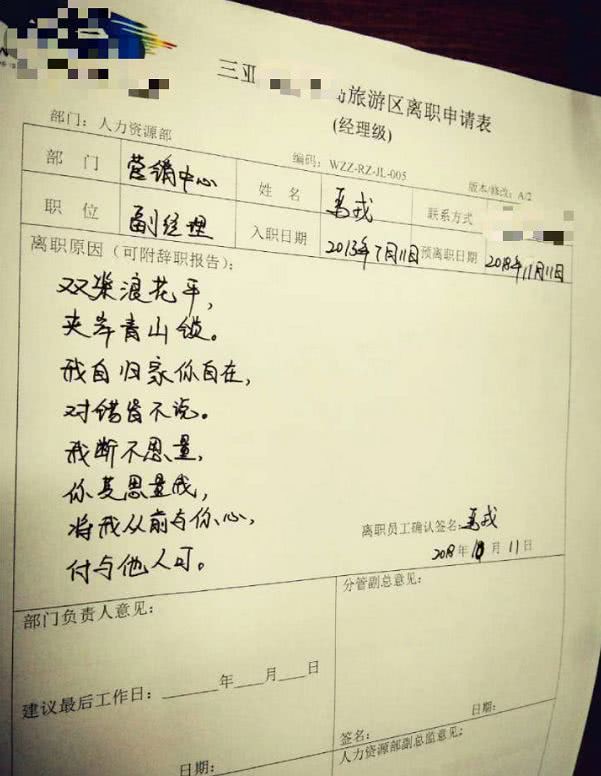 三亚
旅游区离职申请表
(经理级)
部门：人力资源部
编码：WZZ-RZ-JL-005
版本/修改：A/2
部 门 营销中心 姓 名 马戎 联系方式
职 位 副经理 入职日期 2013年7月11日 预离职日期 2018年11月11日
离职原因（可附辞职报告）：
双桨浪花平，
夹岸青山锁。
我自归家你自在，
对错皆不说。
我断不思量，
你莫思量我，
将我从前与你心，
付与他人可。
离职员工确认签名：马戎
2018年10月11日
部门负责人意见：
建议最后工作日：______年____月____日
日期：
分管副总意见：
日期：
签名：
人力资源部副总监意见：